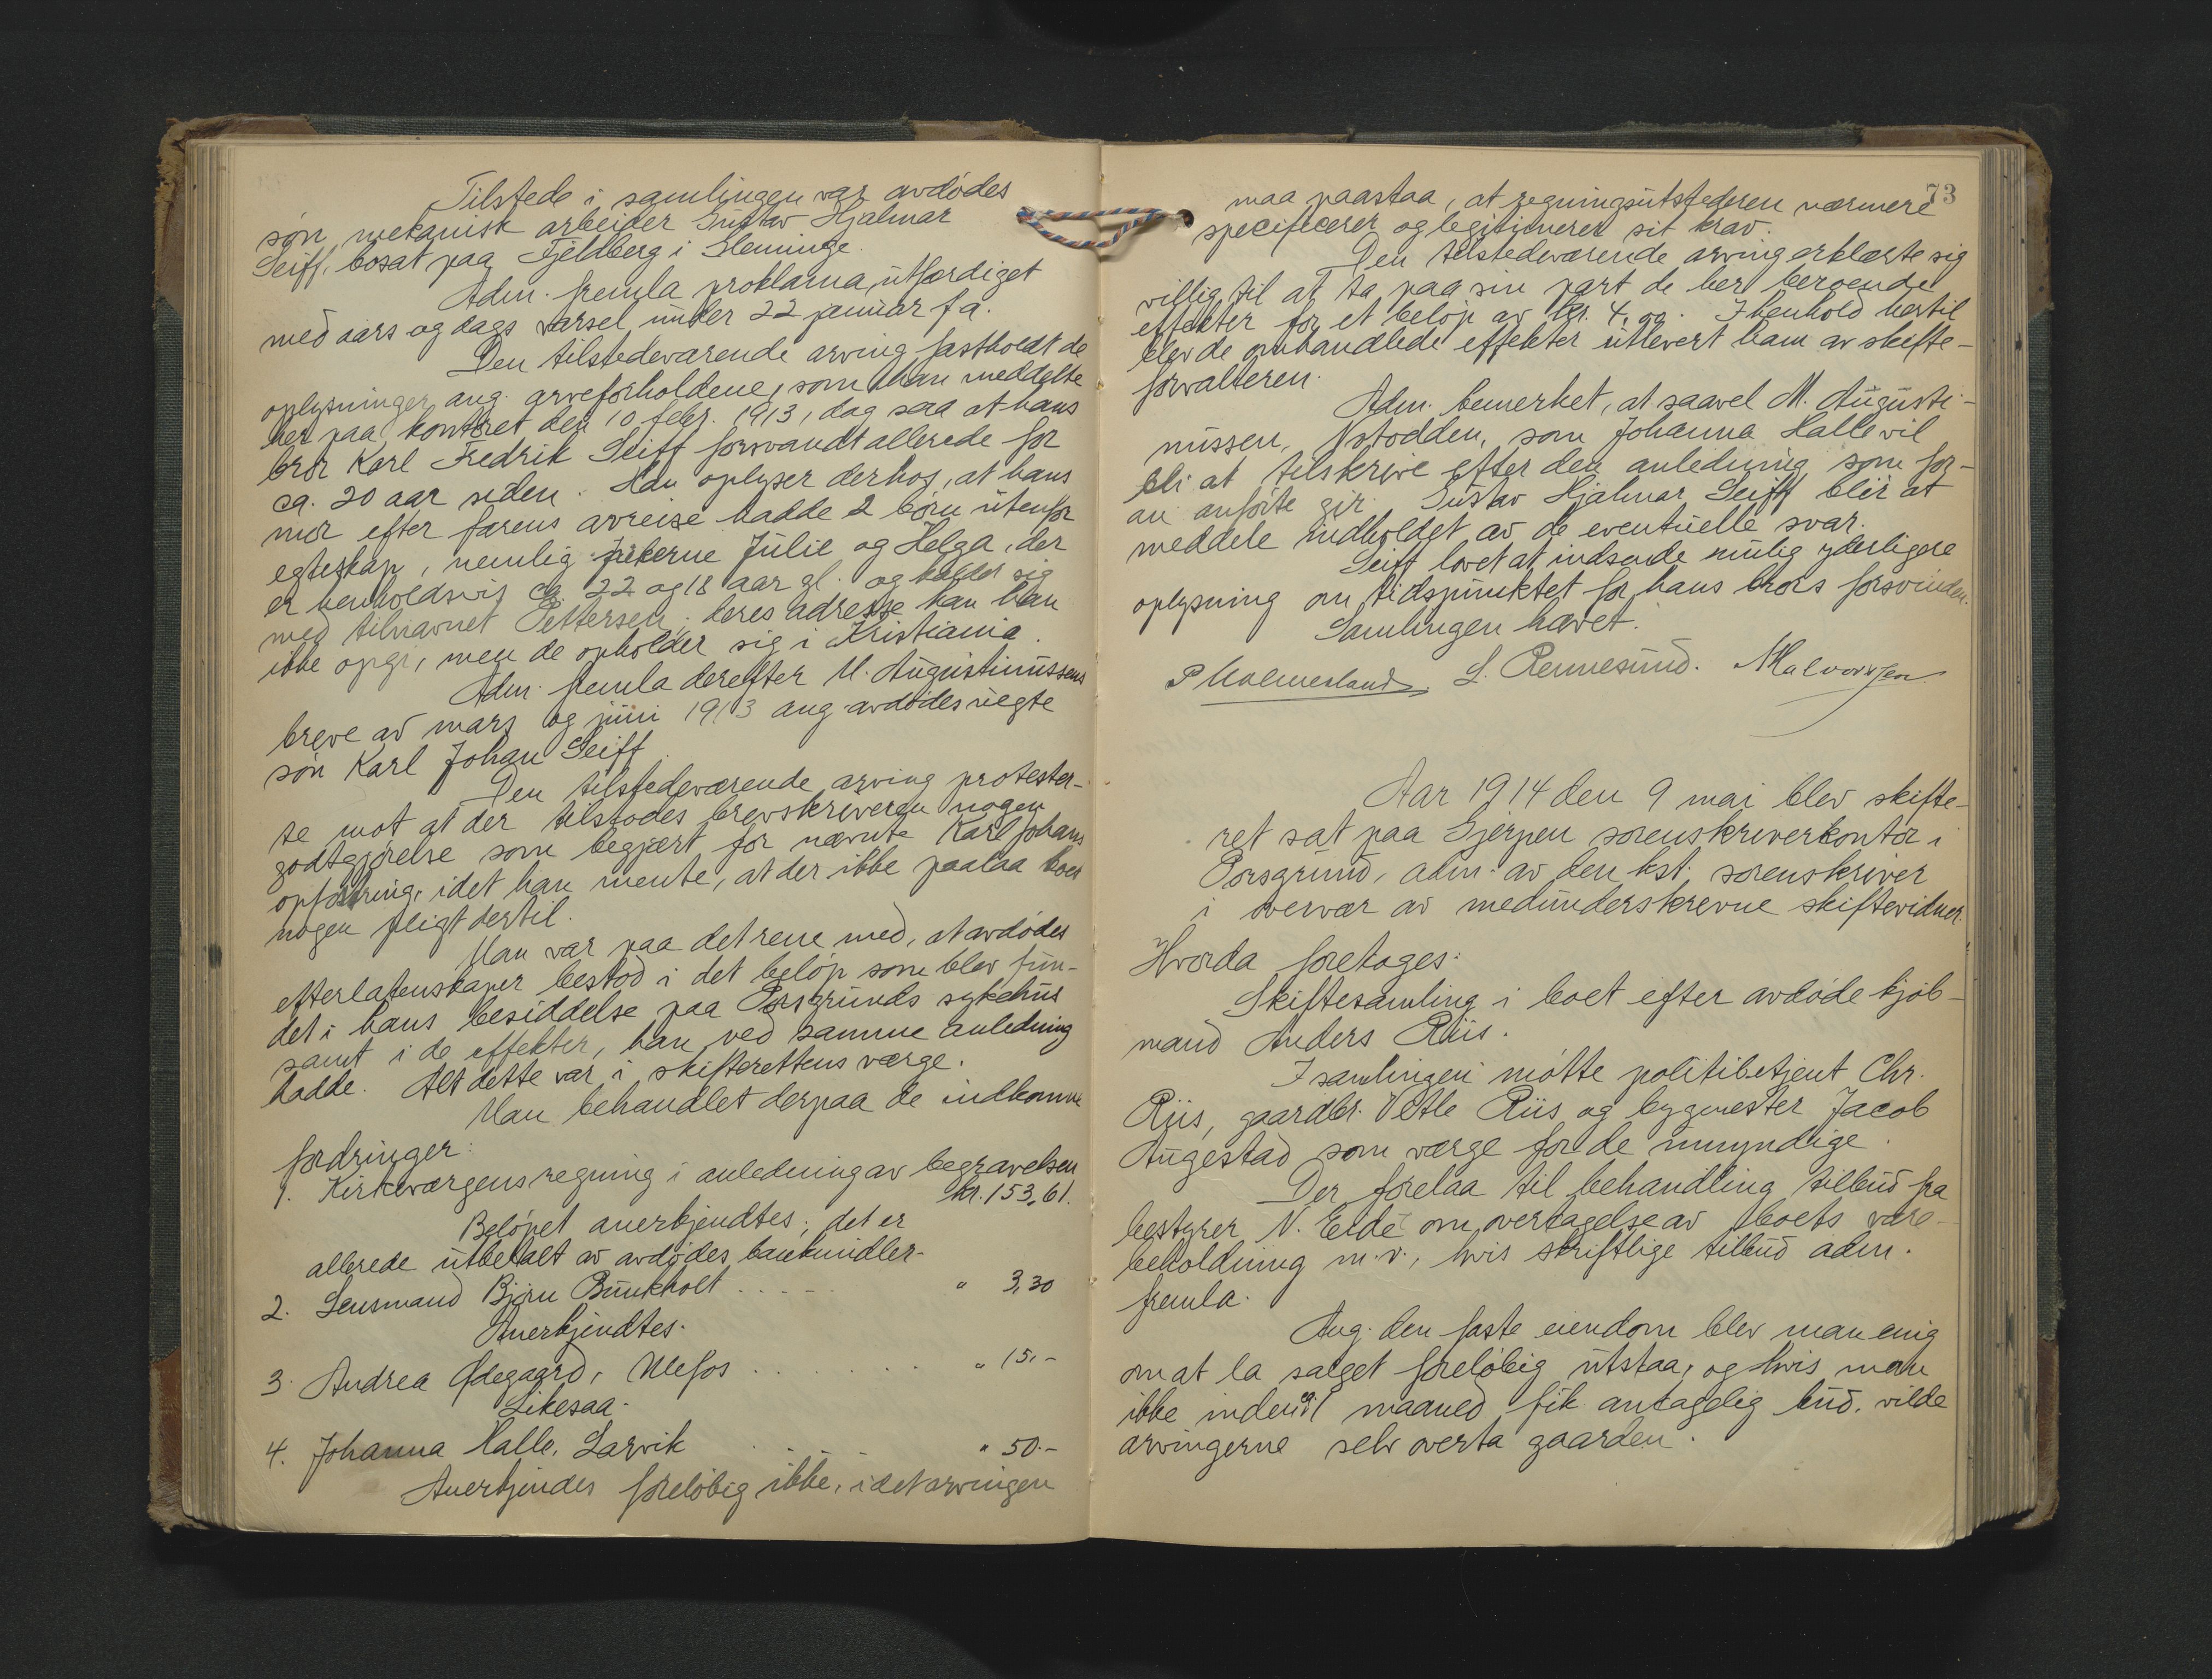 Tilstede i samlingen var avdødes
søn, mekanisk arbeider Gustav Hjalmar
Seiff, bosat paa Fjeldberg i Slemninge.
Adm. fremla proklama, utfærdiget
med aars og dags varsel under 22 januar f.a.
Den tilstedeværende arving fastholdt de
oplysninger ang. arveforholdene, som han meddelte
her paa kontoret den 10 febr. 1913, dog saa at hans
bror Karl Fredrik Seiff forsvandt allerede for
ca. 20 aar siden. Han oplyser derhos, at hans
mor efter farens avreise hadde 2 børn utenfor
egteskap, nemlig pikerne Julie og Helga, der
er henholdsvis ca. 22 og 18 aar gl. og kalder sig
med tilnavnet Pettersen; deres adresse kan han
ikke opgi, men de opholder sig i Kristiania.
Adm. fremla derefter M. Augustinussens
breve av mars og juni 1913 ang. avdødes uegte
søn Karl Johan Seiff.
Den tilstedeværende arving protester-
te mot at der tilstodes brevskriveren nogen
godtgjørelse som begjært for nævnte Karl Johans
opfostring, idet han mente, at der ikke paalaa boet
nogen pligt dertil.
Man var paa det rene med, at avdødes
efterlatenskaper bestod i det beløp som blev fun-
det i hans besiddelse paa Porsgrunds sykehus
samt i de effekter, han ved samme anledning
hadde. Alt dette var i skifterettens værge.
Man behandlet derpaa de indkomne
fordringer:
1. Kirkeværgens regning i anledning av begravelsen
kr. 153,61.
Beløpet anerkjendtes; det er
allerede utbetalt av avdødes bankmidler.
2. Lensmand Bjørn Bunkholt . . . . . " 3,30
Anerkjendtes.
3. Andrea Ødegaard, Ulefos . . . . . . " 15,-
Likesaa.
4. Johanna Halle, Larvik . . . . " 50.-
Anerkjendes foreløbig ikke, idet arvingen
73
maa paastaa, at regningsutstederen nærmere
specificerer og legitimerer sit krav.
Den tilstedeværende arving erklærte sig
villig til at ta paa sin part de her beroende
effekter for et beløp av kr. 4,00. I henhold hertil
blev de omhandlede effekter utlevert ham av skifte-
forvalteren.
Adm. bemerket, at saavel M. Augusti-
nussen, Notodden, som Johanna Halle vil
bli at tilskrive efter den anledning som for-
an anførte gir. Gustav Hjalmar Seiff blir at
meddele indholdet av de eventuelle svar.
Seiff lovet at indsende mulig yderligere
oplysning om tidspunktet for hans brors forsvinden.
Samlingen hævet.
P Holmesland L. Rennesund. MHalvorsen
Aar 1914 den 9 mai blev skifte-
ret sat paa Gjerpen sorenskriverkontor i
Porsgrund, adm. av den kst. sorenskriver
i overvær av medunderskrevne skiftevidner.
Hvorda foretages:
Skiftesamling i boet efter avdøde kjøb-
mand Anders Riis.
I samlingen møtte politibetjent Chr.
Riis, gaardbr. Vetle Riis og bygmester Jacob
Augestad som værge for de umyndige.
Der forelaa til behandling tilbud fra
bestyrer N. Eide om overtagelse av boets vare-
beholdning m.v., hvis skriftlige tilbud adm.
fremla.
Ang. den faste eiendom blev man enig
om at la salget foreløbig utstaa, og hvis man
ikke inden ca. 1 maaned fik antagelig bud, vilde
arvingerne selv overta gaarden.